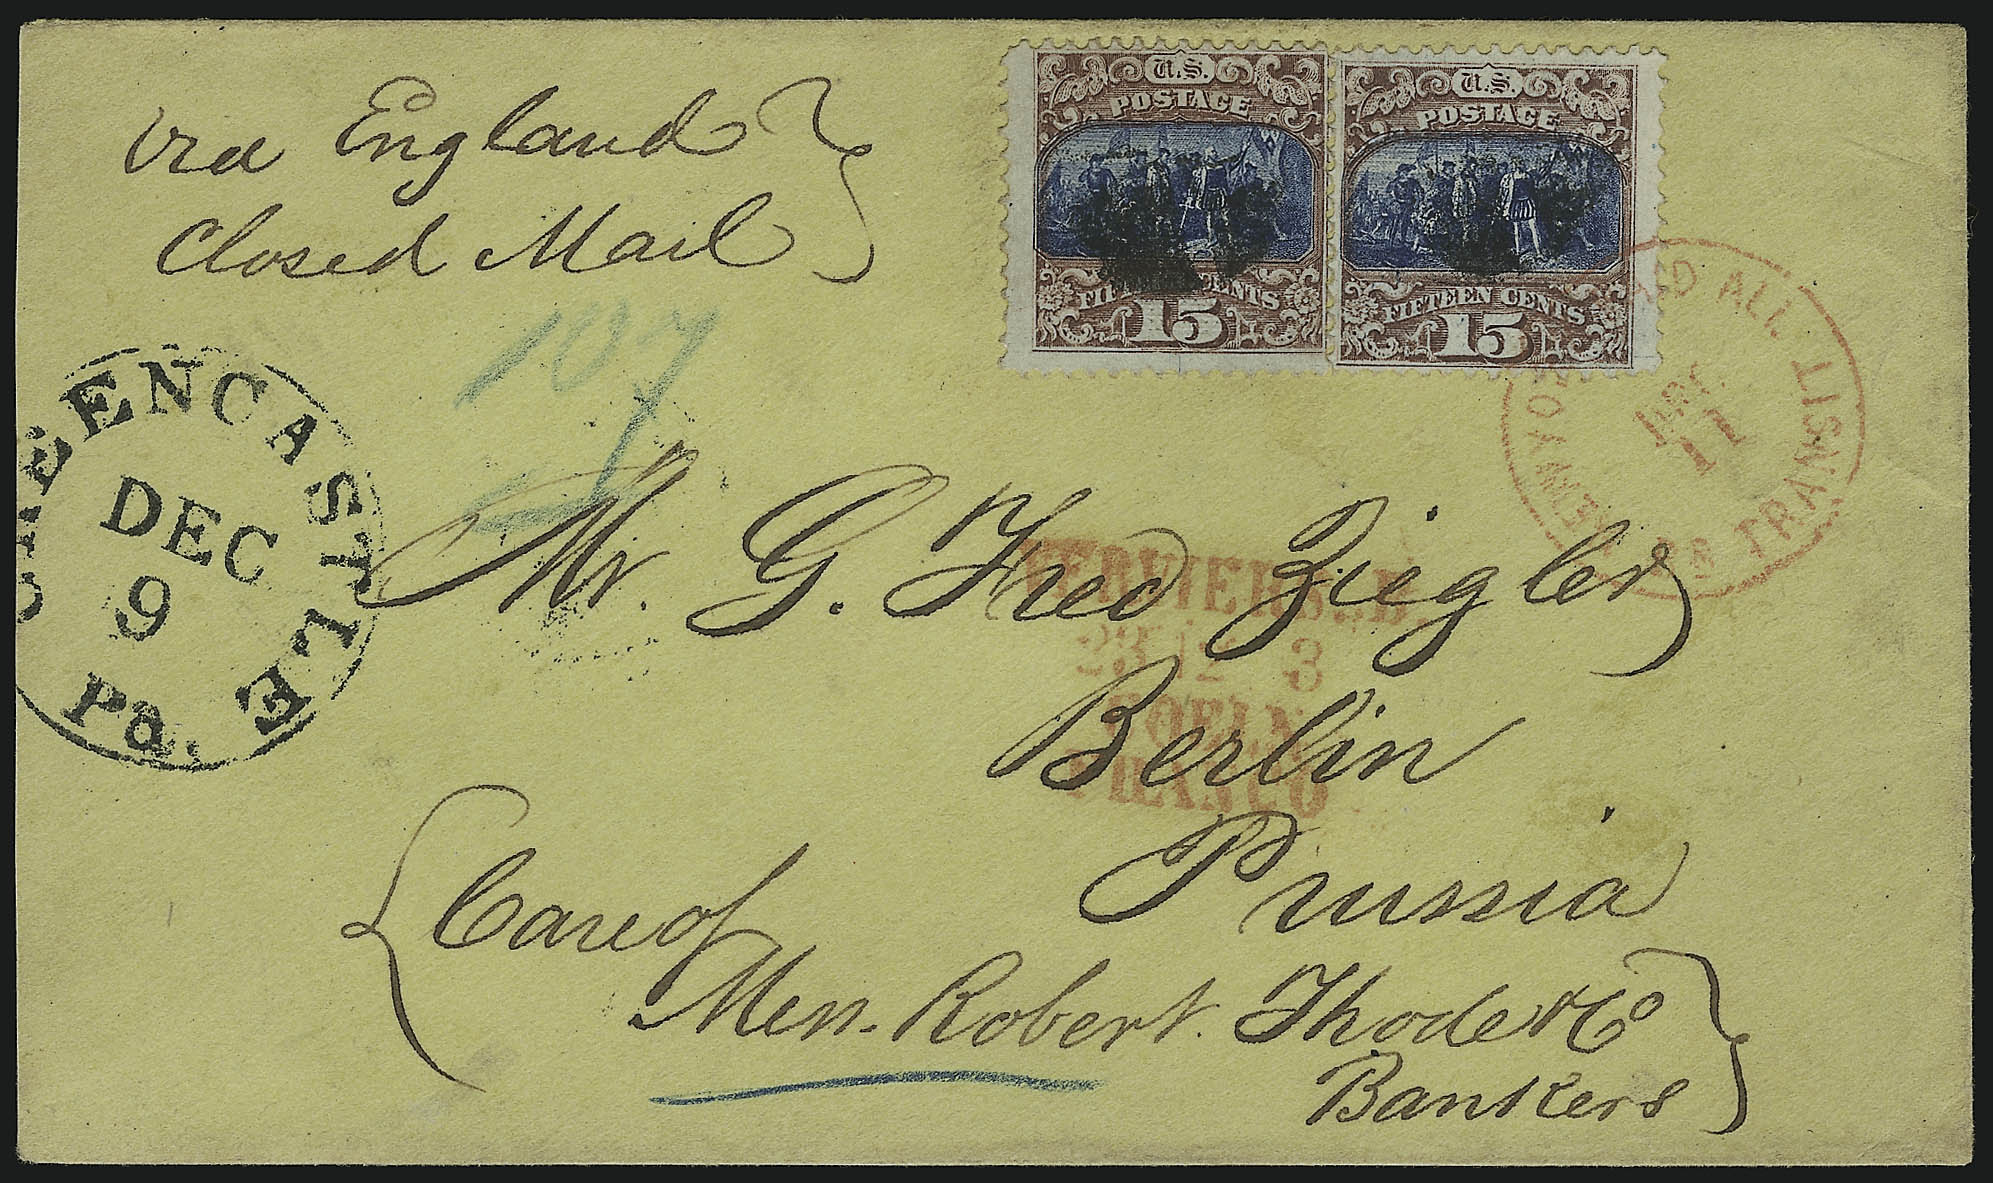 via England
Closed Mail
U.S.
POSTAGE
FIFTEEN CENTS
15
U.S.
POSTAGE
FIFTEEN CENTS
15
GREENCASTLE
DEC
9
Pa.
NEW YORK PAID ALL BR TRANSIT
DEC
11
Mr. G. Fred Ziegler
VERVIERS..B.
23 12 3
COELN
FRANCO
Berlin
Prussia
Care of
Mess. Robert Thode & Co
Bankers